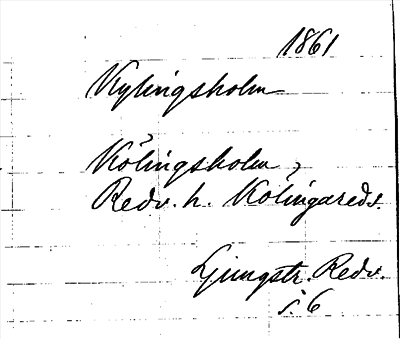 1861
Kylingsholm
Kölingsholm,
Redv. h. Kölingareds.
Ljungstr. Redv.
s. 6